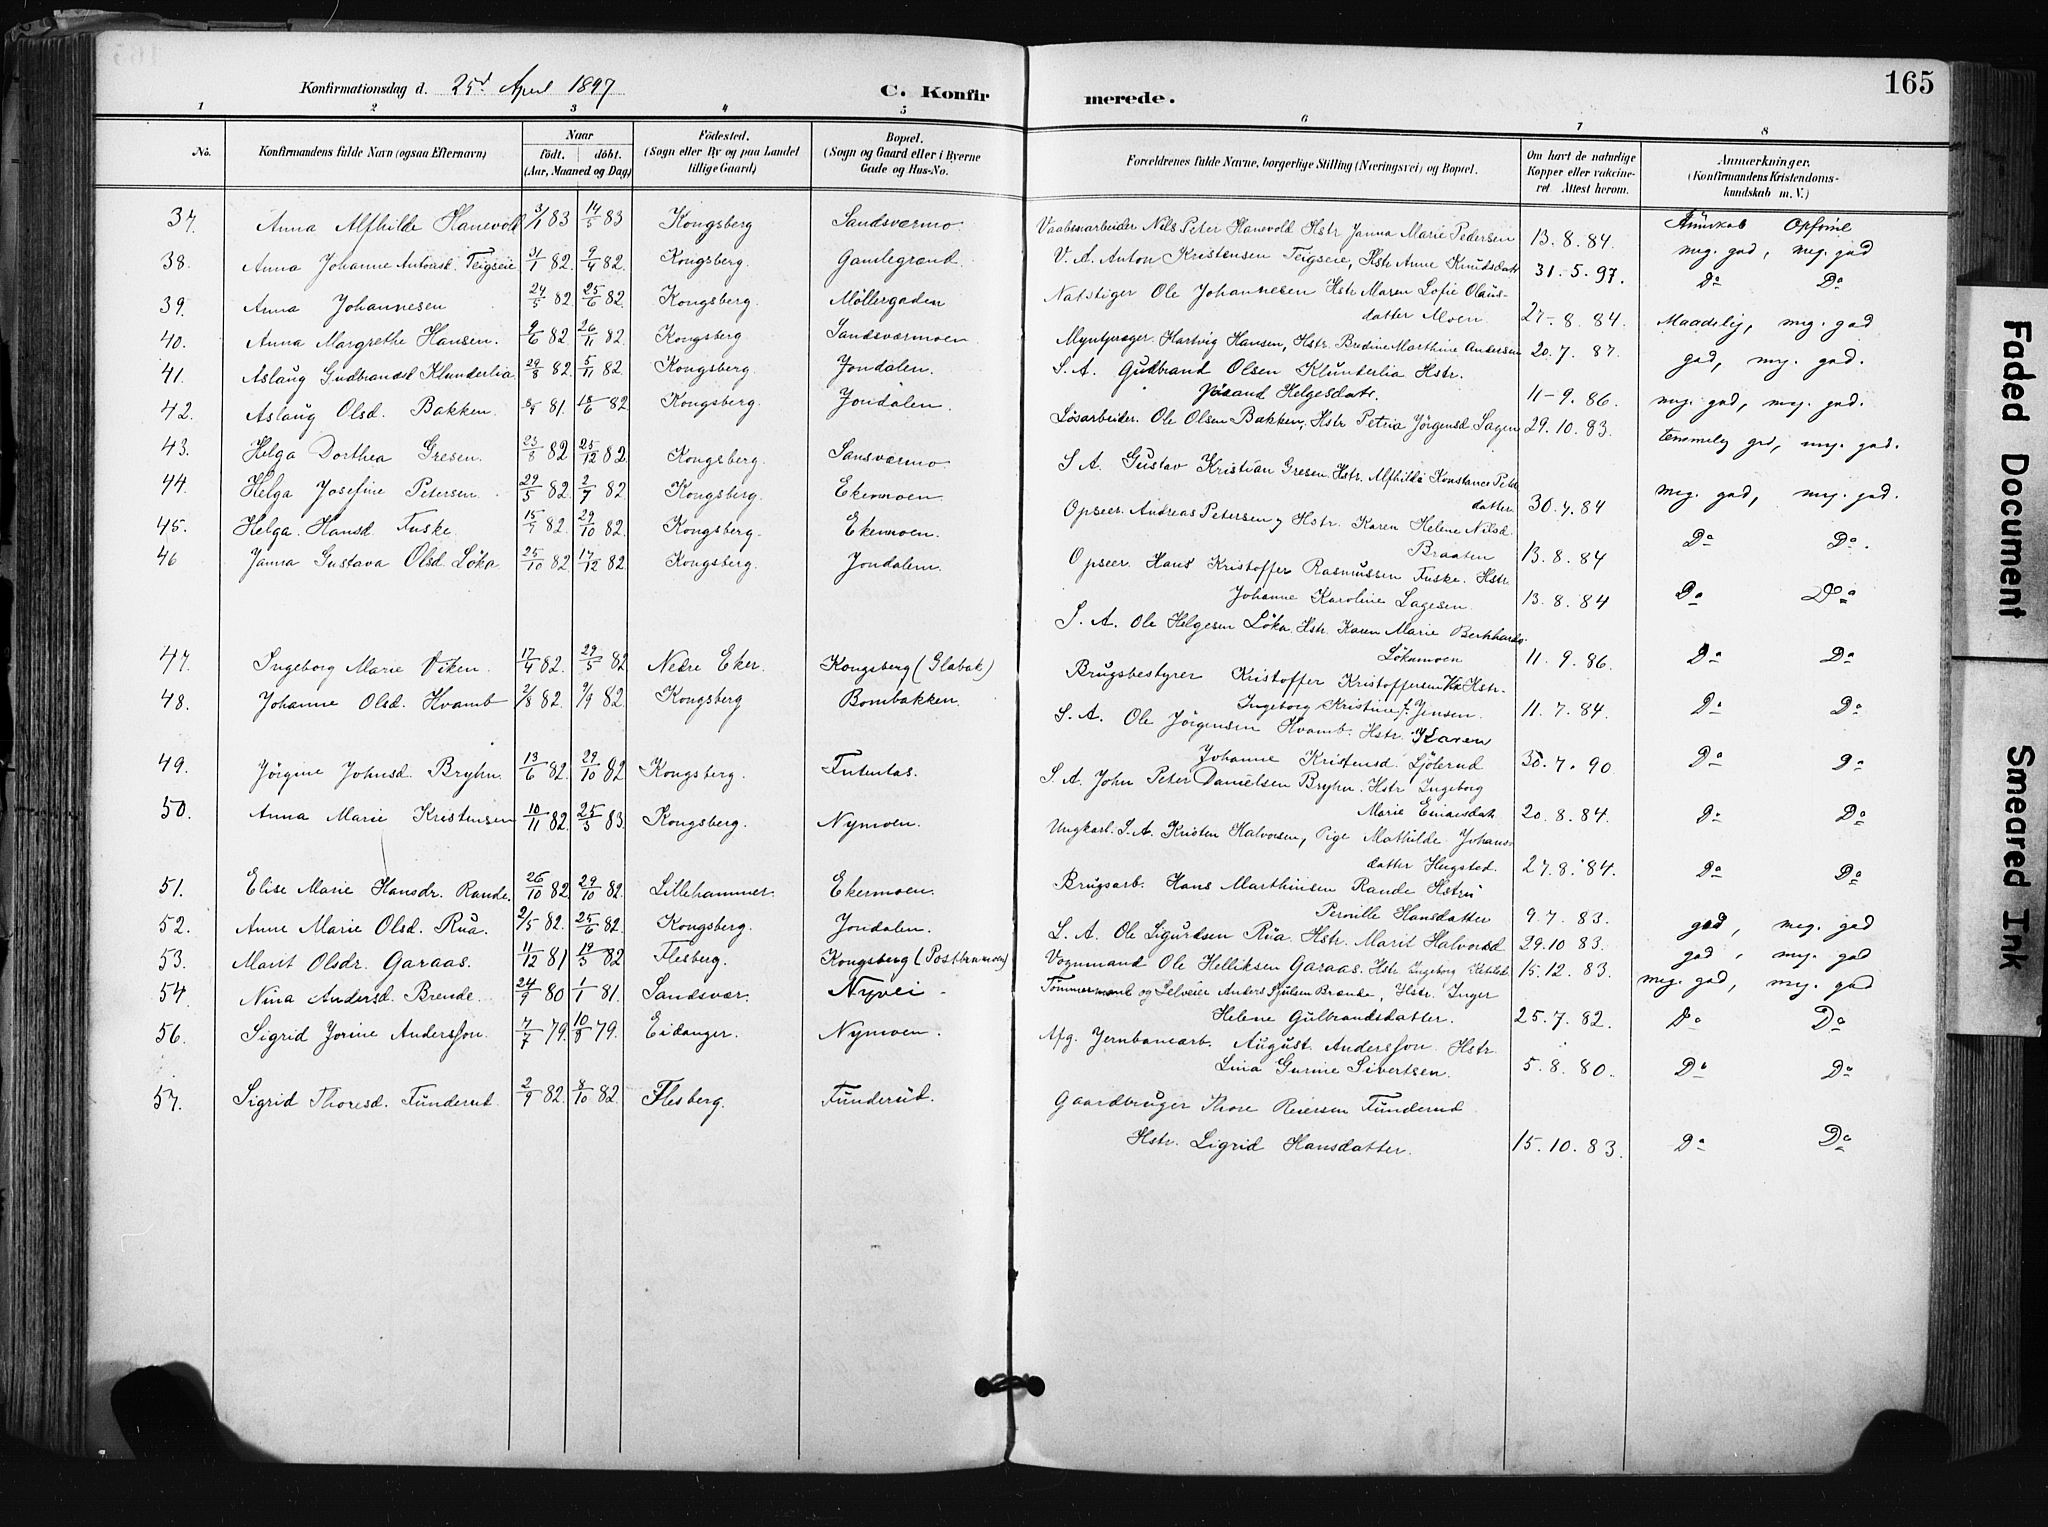 165
Konfirmationsdag d. 25d April 1897
C. Konfirmerede.
1 2 3 4 5 6 7 8
No.
Konfirmandens fulde Navn (ogsaa Efternavn)
Naar födt. döbt. (Aar, Maaned og Dag)
Födested. (Sogn eller By og paa Landet tillige Gaard)
Bopæl. (Sogn og Gaard eller i Byerne Gade og Hus-No.
Forældrenes fulde Navne, borgerlige Stilling (Næringsvei) og Bopæl.
Om havt de naturlige Kopper eller vakcineret Attest herom.
Anmærkninger. (Konfirmandens Kristendomskundskab m. V.)
Kundskab Opförsel
37. Anna Alfhilde Hanevold 3/1 83 14/5 83 Kongsberg Sandsværmo Vaabenarbeider Nils Peter Hanevold Hstr Janna Marie Pedersen 13.8.84. meg. god, meg. god
38. Anna Johanne Antonsd. Teigseie 3/1 82. 9/4 82. Kongsberg. Gamlegrænd. V. A. Anton Kristensen Teigseie, Hstr Anne Knudsdatr 31-5.97. Do Do
39. Anna Johannesen 24/5 82 25/6 82. Kongsberg. Möllergaden Natstiger Ole Johannesen Hstr Maren Sofie Olaus-
datter Moen. 27-8.84. Maadelig, meg. god
40. Anna Margrethe Hansen. 9/6 82 26/11 82. Kongsberg Sandsværmoen Myntpræger. Hartvig Hansen, Hstr. Bredine Marthine Andersen 20.7.87. god, meg. god.
41. Aslaug Gudbrandsd Klunderlia 29/8 82. 5/11 82 Kongsberg Jondalen. S. A. Gudbrand Olsen Klunderlia Hstr.
Jörand Helgesdatr. 11-9.86. meg. god, meg. god.
42. Aslaug Olsd. Bakken. 81. 18/6 82 Kongsberg. Jondalen. Lösarbeider. Ole Olsen Bakken, Hstr Petria Jörgensd Sagen 29.10.83. temmelig god, meg. god.
43. Helga Dorthea Gresen. 23/5 82 25/12 82 Kongsberg. Sansværmo. S A. Gustav Kristian Gresen. Hstr. Alfhilda Konstance Peter
datter 30.4.84 meg. god, meg. god.
44. Helga Josefine Petersen 29/5 82. 2/7 82 Kongsberg. Ekermoen Opseer. Andreas Petersen, Hstr. Karen Helene Nilsd.
Braaten 13.8.84 Do Do.
45. Helga. Hansd Fuske. 15/9 82. 29/10 82. Kongsberg. Ekermoen. Opseer. Hans Kristoffer Rasmussen Fuske. Hstr
Johanne Karoline Lagesen. 13.8.84 Do Do
46 Janna Gustava Olsd. Löka 25/10 82 17/12 82 Kongsberg. Jondalen. S. A. Ole Helgesen Löka. Hstr. Karen Marie
Lökamoen 11.9.86. Do Do
47. Ingeborg Marie Viken 17/4 82. 29/5 82 Nedre Eker. Kongsberg (Glabak) Brugsbestyrer Kristoffer Kristoffersen Hstr.
Ingeborg Kristine f. Jensen. 11.7.84. Do Do
48. Johanne Olsd. Hvamb 2/8 82. 9/9 82 Kongsberg Bombakken. S. A. Ole Jörgensen Hvamb. Hstr. Karen
Johanne Kristensd. Sjölerud 30.7.90 Do Do
49. Jörgine Johnsd. Bryhn. 13/6 82. 29/10 82 Kongsberg. Futentas. S. A. John Peter Danielsen Bryhn. Hstr Ingeborg
Marie Einarsdatr 20.8.84. Do Do
50. Anna Marie Kristensen 10/11 82. 25/3 83. Kongsberg. Nymoen. Ungkarl. S. A. Kristen Halvorsen, Pige Mathilde Johans-
datter Hengsted. 27.8.84. Do Do
51. Elise Marie Hansdr. Rande. 26/10 82 29/10 82. Lillehammer. Ekermoen. Brugsarb. Hans Marthinsen Rande Hstru
Pernille Hansdatter 9.7.83. god, meg. god
52. Anne Marie Olsd. Rua. 2/5 82. 25/6 82. Kongsberg. Jondalen. S. A. Ole Sigurdsen Rua. Hstr. Marit Halvorsd 29.10 83. god, meg. god
53. Marit Olsdr. Garaas. 11/12 81 19/3 82 Flesberg. Kongsberg (Postbramoen) Vognmand Ole Helliksen Garaas. Hstr Ingeborg Ketilsdr 15.12.83. meg. god, meg. god
54. Nina Andersd. Brende. 24/9 80 1/1 81. Sandsvær. Nyvei Tömmermand og Selveier Anders Sjulsen Brænde, Hstr. Inger
Helene Gulbrandsdatter. 25.7.82. Do Do
56. Sigrid Jorine Andersson. 7/7 79. 10/8 79. Eidanger. Nymoen. Afg. Jernbanearb. August Andersson. Hstr.
Lina Gurine Sivertsen. 5.8.80. Do Do
57. Sigrid Thoresd. Funderud 2/9 82. 8/10 82. Flesberg. Funderud. Gaardbruger Thore Reiersen Funderud
Hstr. Sigrid Hansdatter. 15.10.83. Do Do
Faded Document
Smeared Ink